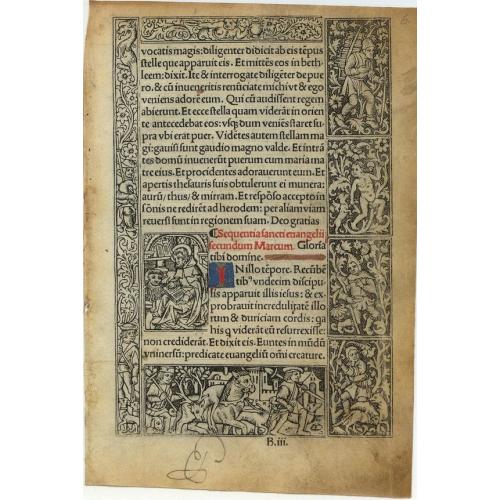 6
vocatis magis: diligenter didicit ab eis tēpus
stelle que apparuit eis. Et mittēs eos in beth
leem: dixit. Ite & interrogate diligēter de pue
ro. & cū inueneritis renūciate michi vt & ego
veniens adorē eum. Qui cū audissent regem
abierunt. Et ecce stella quam viderāt in orien
te antecedebat eos: vsq; dum veniēs staret su
pra vbi erat puer. Vidētes autem stellam ma
gi: gauisi sunt gaudio magno valde. Et intrā
tes domū inuenerūt puerum cum maria ma
tre eius. Et procidentes adorauerunt eum. Et
apertis thesauris suis obtulerunt ei munera:
aurū/ thus/ & mirram. Et respōso accepto in
sōnis ne redirēt ad herodem: per aliam viam
reuersi sunt in regionem suam. Deo gratias
¶Sequentia sancti euangelii
secundum Marcum. Gloria
tibi domine.
IN illo tēpore. Recūbē
tibꝰ vndecim discipu
lis apparuit illis iesus: & ex
probrauit incredulitatē illo
rum & duriciam cordis: qa
his q viderāt eū resurrexisse
non crediderāt. Et dixit eis. Euntes in mūdū
vniuersū: predicate euangeliū om̄i creature.
B.iii.